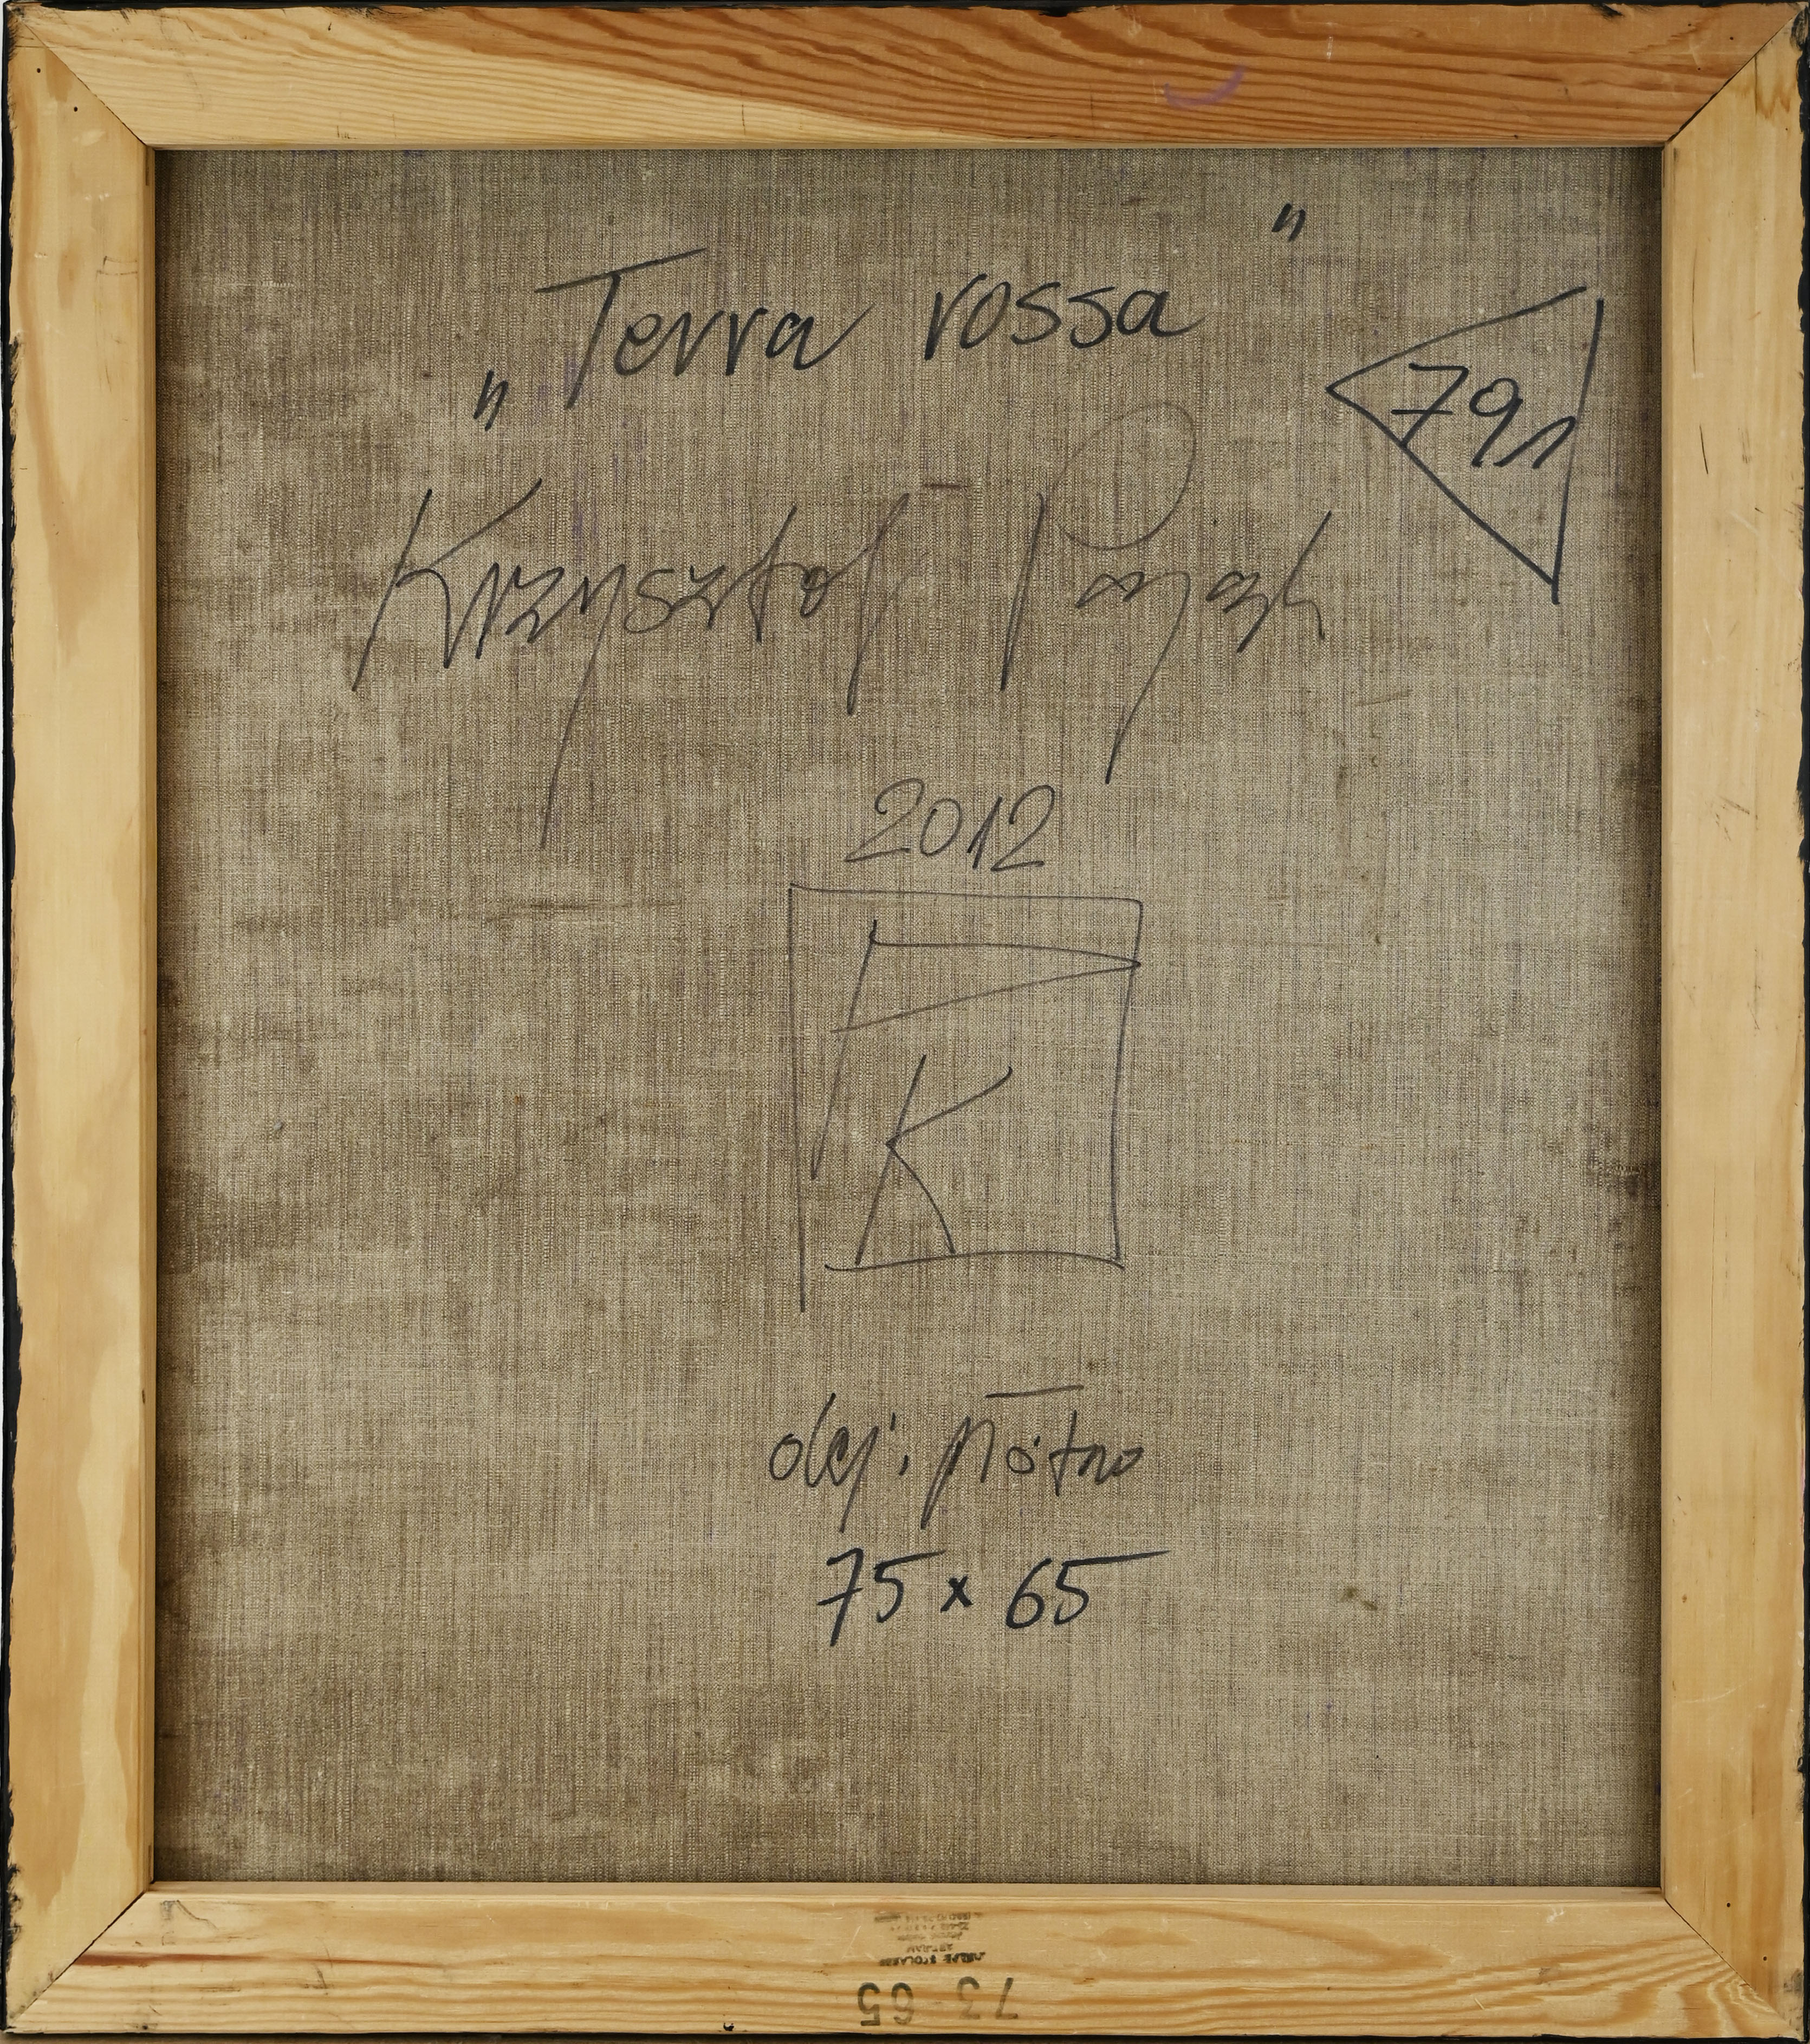 „Terra rossa”
791
Krzysztof Pająk
2012
K
olej, płótno
75 x 65
75 65